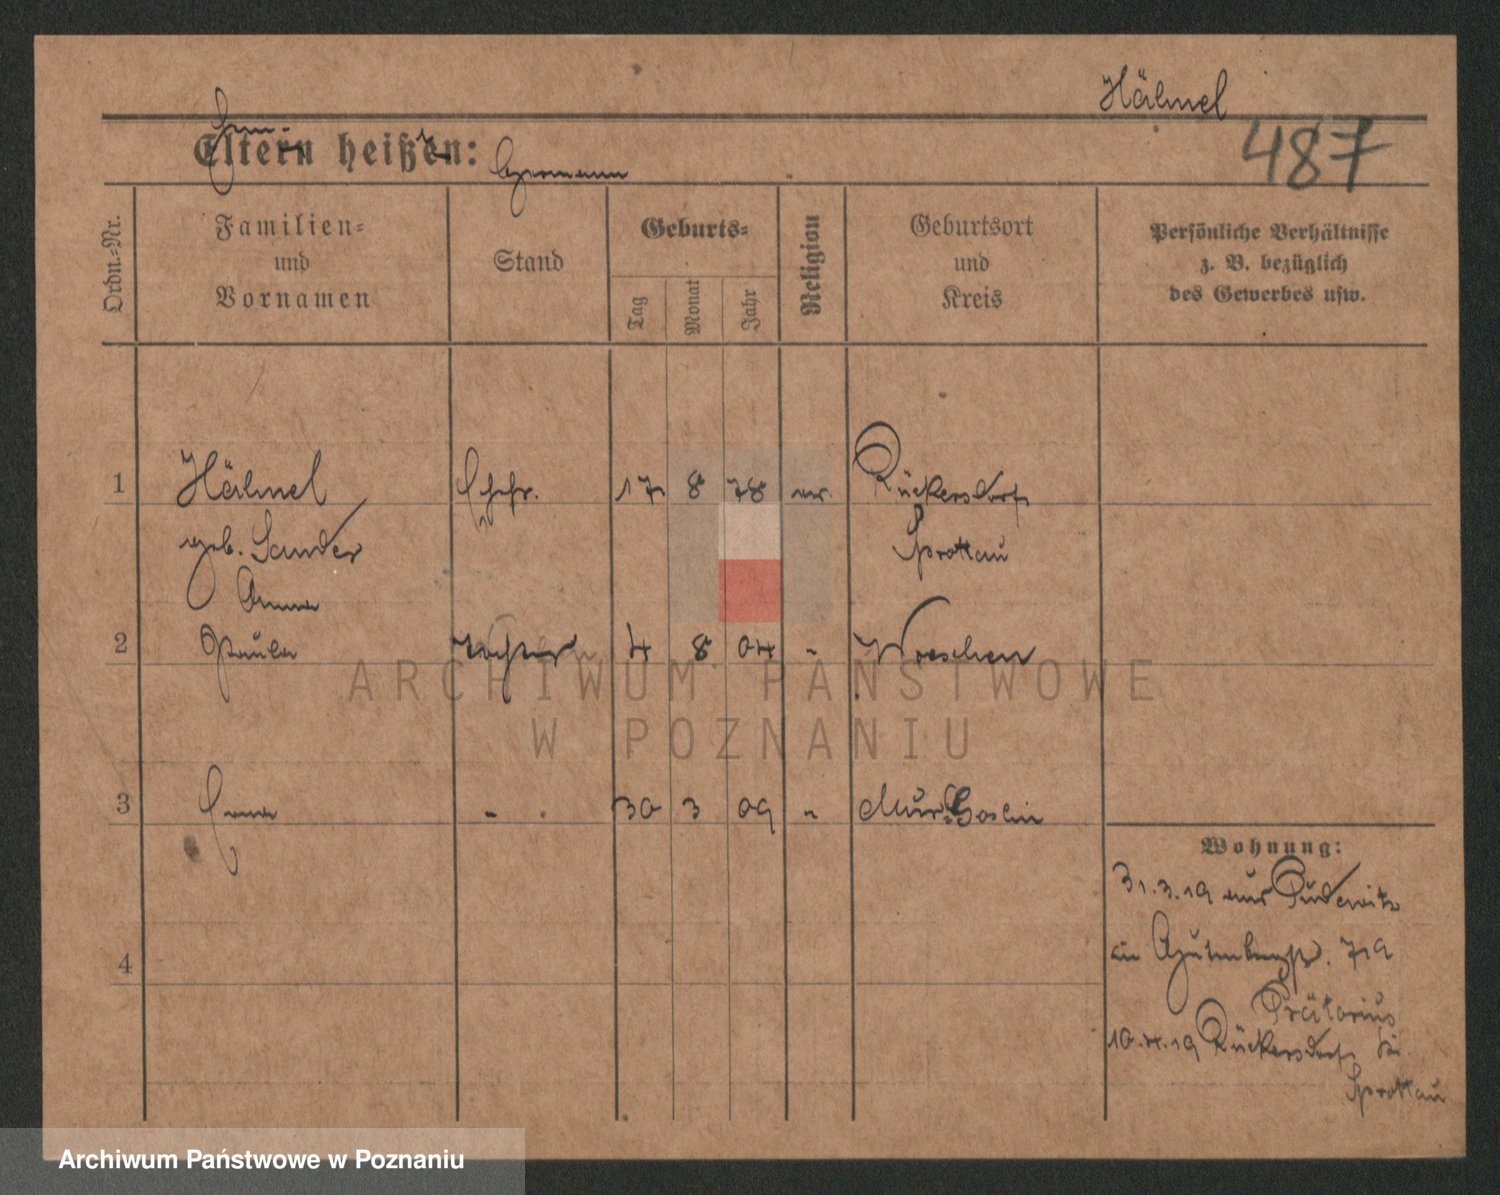 Hähnel
487
Eltern heißen:
Hermann
Ordn.-Nr.
Familien-
und
Vornamen
Stand
Geburts-
Tag
Monat
Jahr
Religion
Geburtsort
und
Kreis
Persönliche Verhältnisse
z. B. bezüglich
des Gewerbes usw.
1 Hähnel Ehefr. 17 8 78 ev. Rückersdorf
geb. Sander Sprottau
Anna
2 Paula Tochter 4 8 04 - Wreschen
3 Erna - 30 3 09 - Mur. Goslin
4
Wohnung:
31.3.19 aus Pudewitz
in Gutenbergstr. 7 19
Prätorius
10.4.19 Rückersdorf Kr.
Sprottau
ARCHIWUM PAŃSTWOWE
W POZNANIU
Archiwum Państwowe w Poznaniu